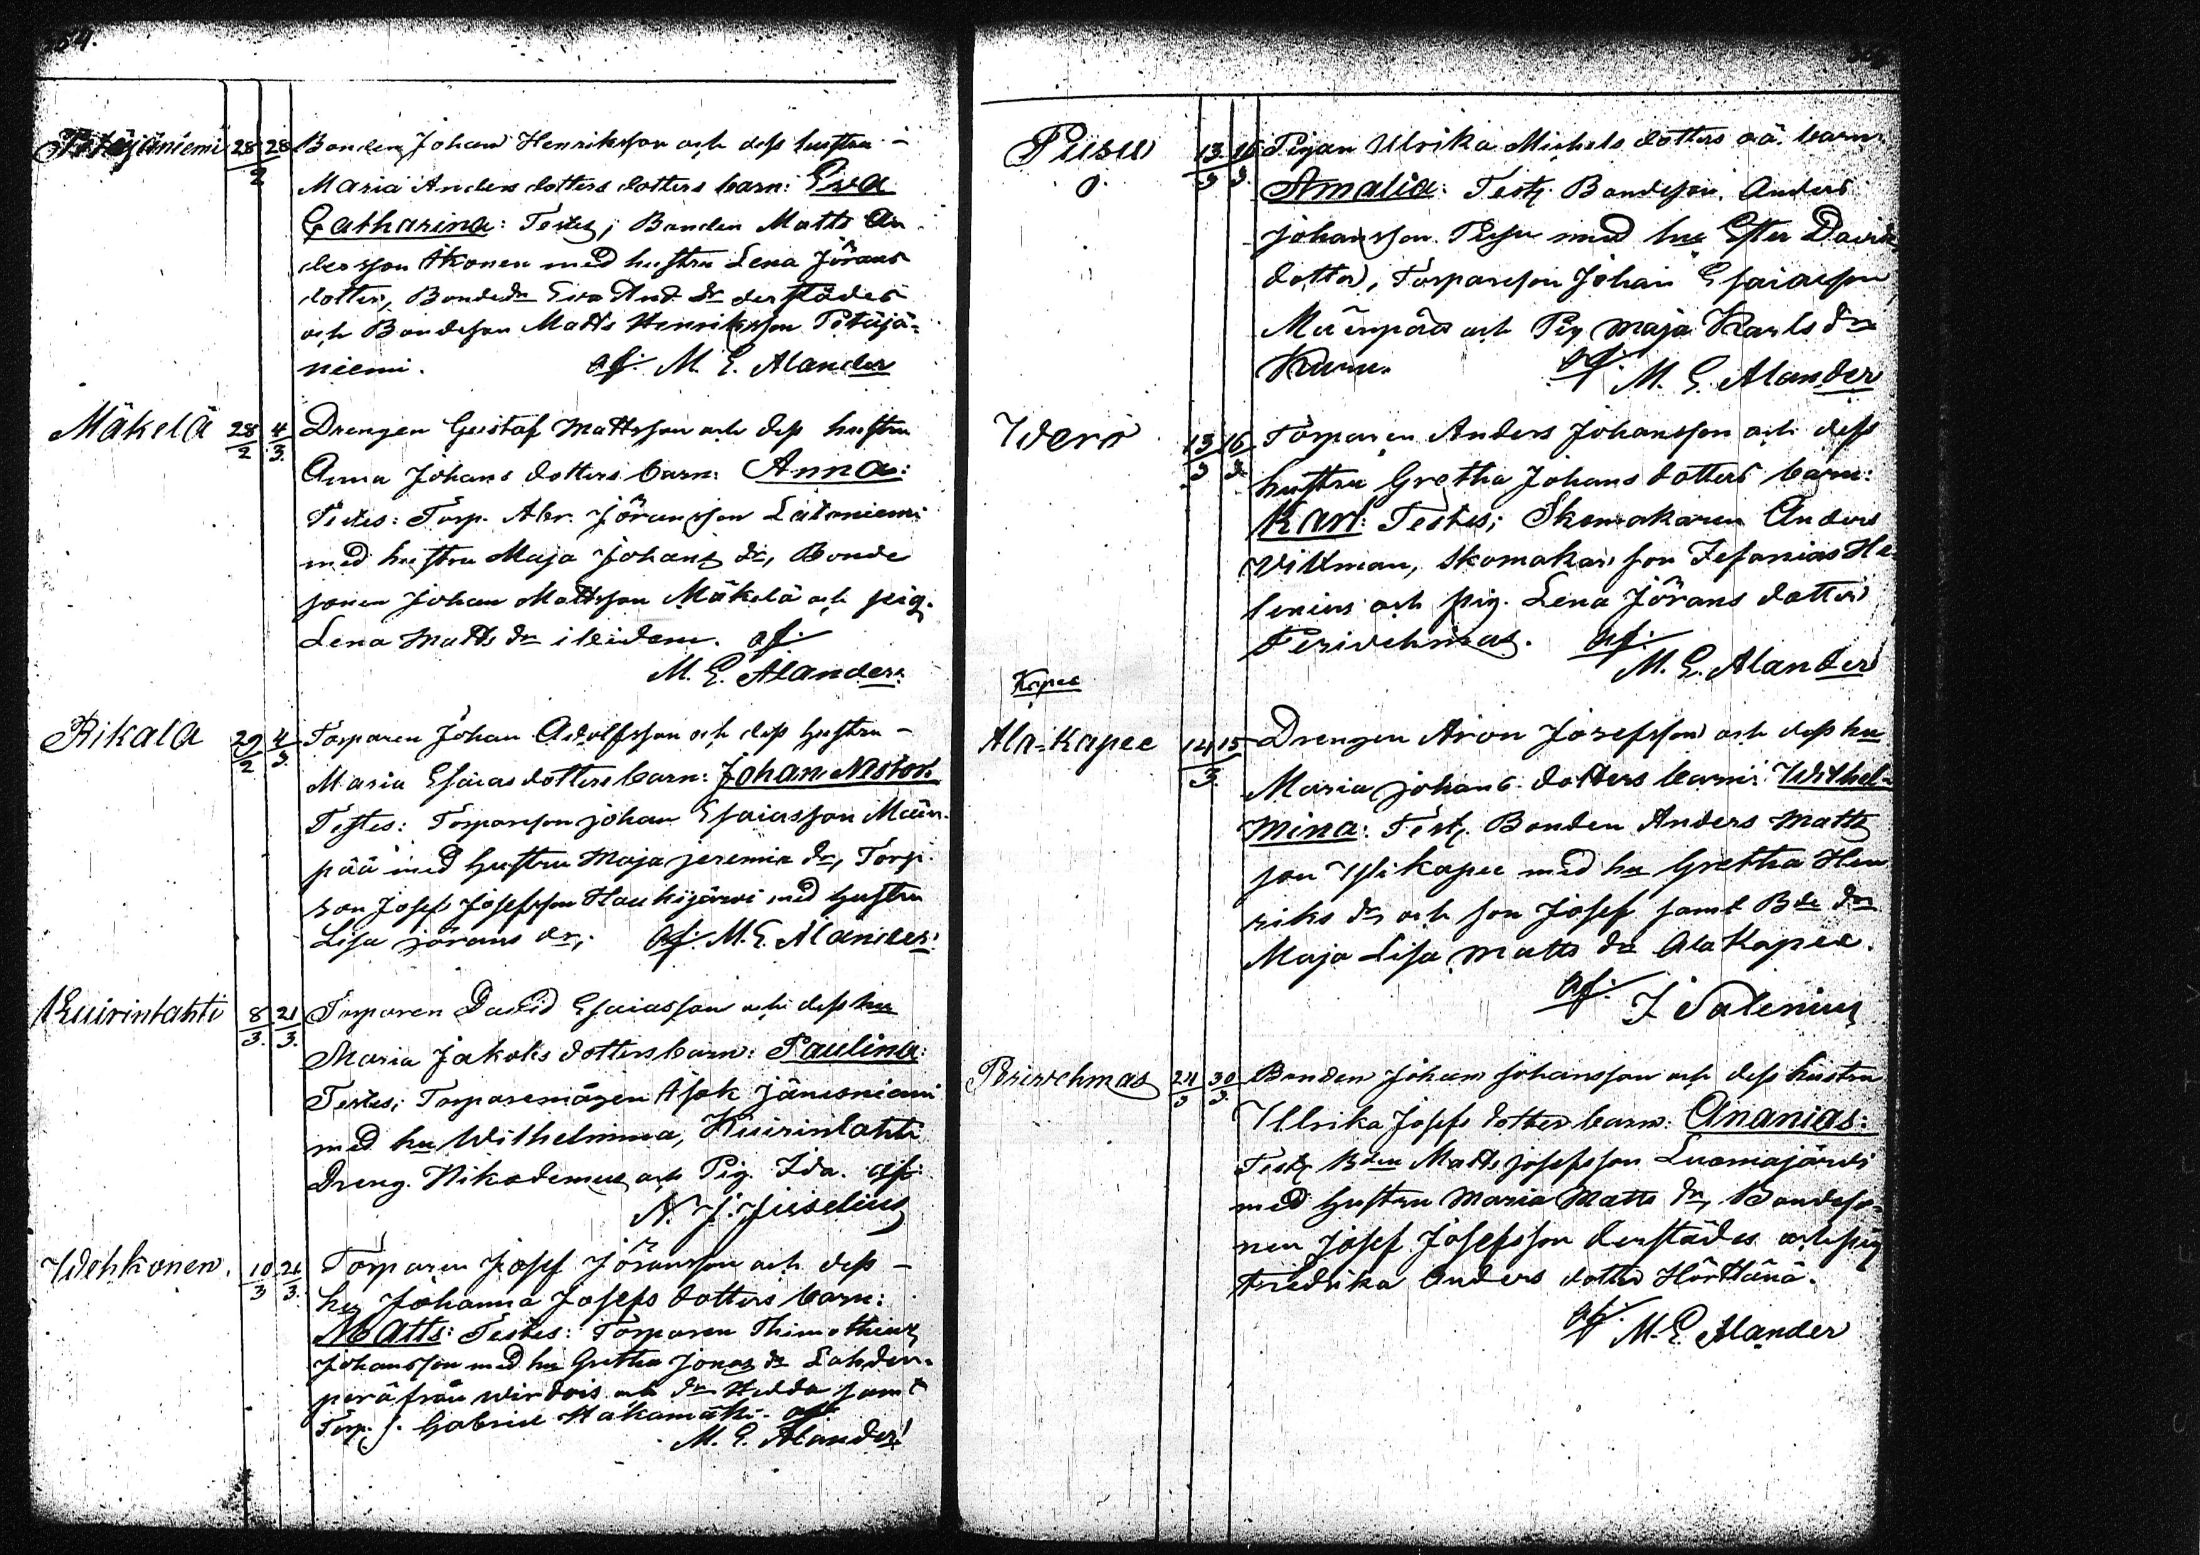 Petäjäniemi 28/2 28 Bonden Johan Henriksson och dess hustru -
Maria Anders dotters dotters barn: Eva
Catharina: Testes; Bonden Matts An
dersson Ikonen med hustru Lena Jörans
dotter, Bondedr Eva And dr derstädes
och Bondeson Matts Henriksson Petäjä-
niemi. af. M. E. Alander
Mäkelä 28/2 4/3 Drengen Gustaf Mattsson och dess hustru
Anna Johans dotters barn: Anna:
Testes: Torp. Abr. Jöransson
med hustru Maja Johans dr, Bonde
sonen Johan Mattsson Mäkelä och pig.
Lena Matts dr ibidem. af.
M. E. Alander.
Rikala 29/2 4/3 Torparen Johan Adolfsson och dess hustru -
Maria Esaias dotters barn: Johan Nestor.
Testes: Torpareson Johan Esaiasson Mäen-
pää med hustru Maja Jeremia dr, Torp.
son Josef Josefsson Haukijärvi med hustru
Lisa Jörans dr; af. M. E. Alander.
Kuirinlahti 8/3 21/3 Torparen David Esaiasson och dess hu
Maria Jakobs dotters barn: Paulina:
Testes; Torparemågen Isak Jänesniemi
med hu Wilhelmina, Kuirinlahti
Dreng. Nikodemus och Pig. Ida. af.
N. J. Juselius
Wehkonen. 10/3 21/3 Torparen Josef Jöransson och dess -
hu Johanna Josefs dotters barn:
Matts: Testes: Torparen Thimotheus
Johansson med hu Gretha Jonas dr Lahden-
perä från Wirdois och dr Hedda samt
Torp. s. Gabriel Hakamäki. af
M. E. Alander
Pusu 13/3 16/3 Pigan Ulrika Michels dotters oä. barn:
o. Amalia: Test. Bondeson Anders
Johansson Pusu med hu Ester Davids
dotter, Torpareson Johan Esaiasson
Mäenpää och Pig Maja Karls dr
Kuru. af.
M. E. Alander
Wero 13/3 16/3 Torparen Anders Johansson och dess
hustru Gretha Johans dotters barn:
Karl: Testes; Skomakaren Anders
Willman, Skomakareson Zefanias He-
lenius och pig. Lena Jörans dotter
Perivehmas. af.
M. E. Alander
Kapee
Ala-Kapee 14 15/3 Drengen Aron Josefsson och dess hu
Maria Johans dotters barn: Wilhel-
mina: Test. Bonden Anders Matts
son Ylikapee med hu Gretha Hen
riks dr och son Josef samt Bde dr
Maja Lisa Matts dr Ala Kapee.
af. J Salenius
Perivehmas 24/3 30/3 Bonden Johan Johansson och dess hustru
Ulrika Josefs dotters barn: Ananias:
Test. Bden Matts Josefsson Luomajärvi
med hustru Maria Matts dr, Bondeso-
nen Josef Josefsson derstädes och pig
Fredrika Anders dotter Hörttänä.
af. M. E. Alander